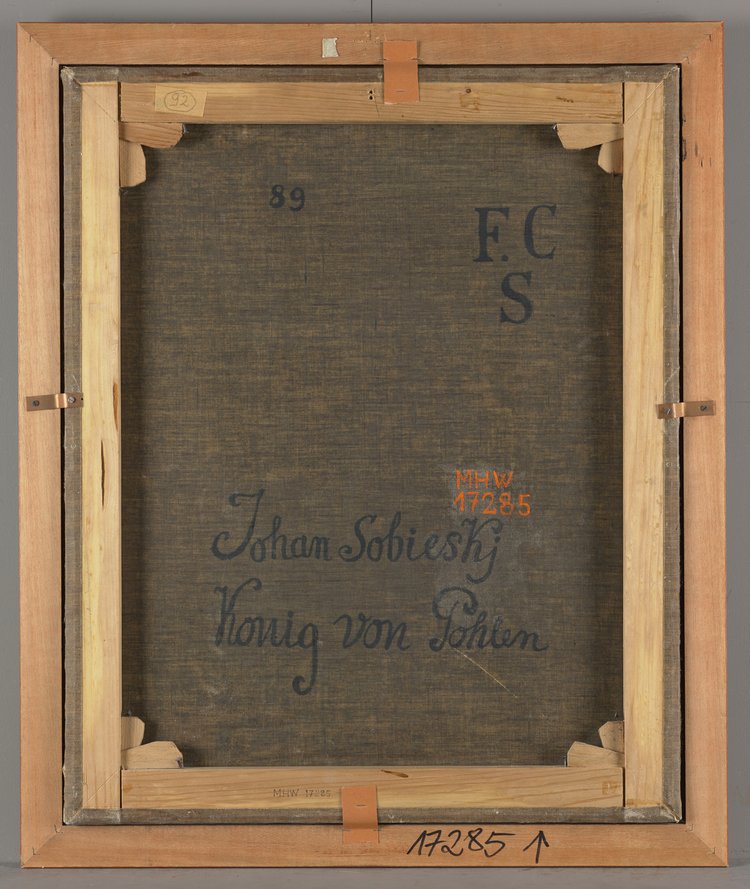 92
89
F. C
S
MHW
17285
Johan Sobieskj
König von Pohlen
MHW 17285
17285 ↑